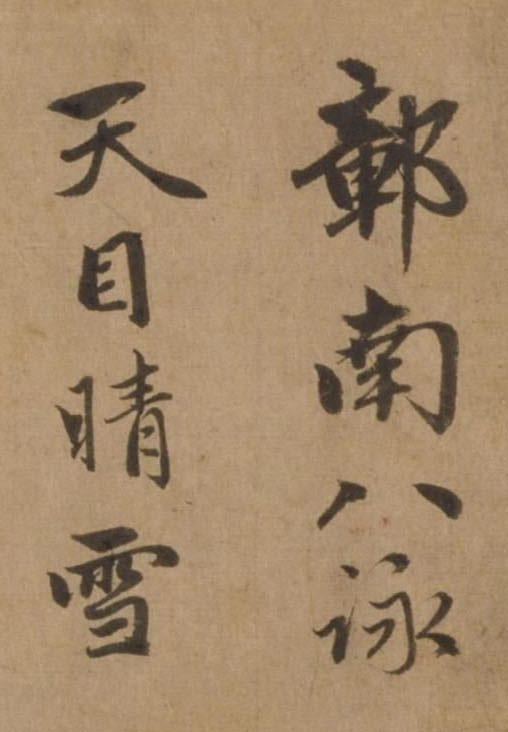 鄣南八詠
天目晴雪